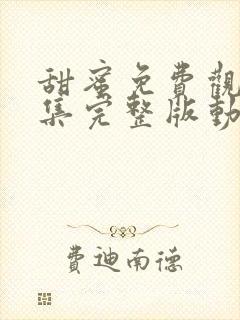 甜蜜免費觀
集完整版動
費迪南德